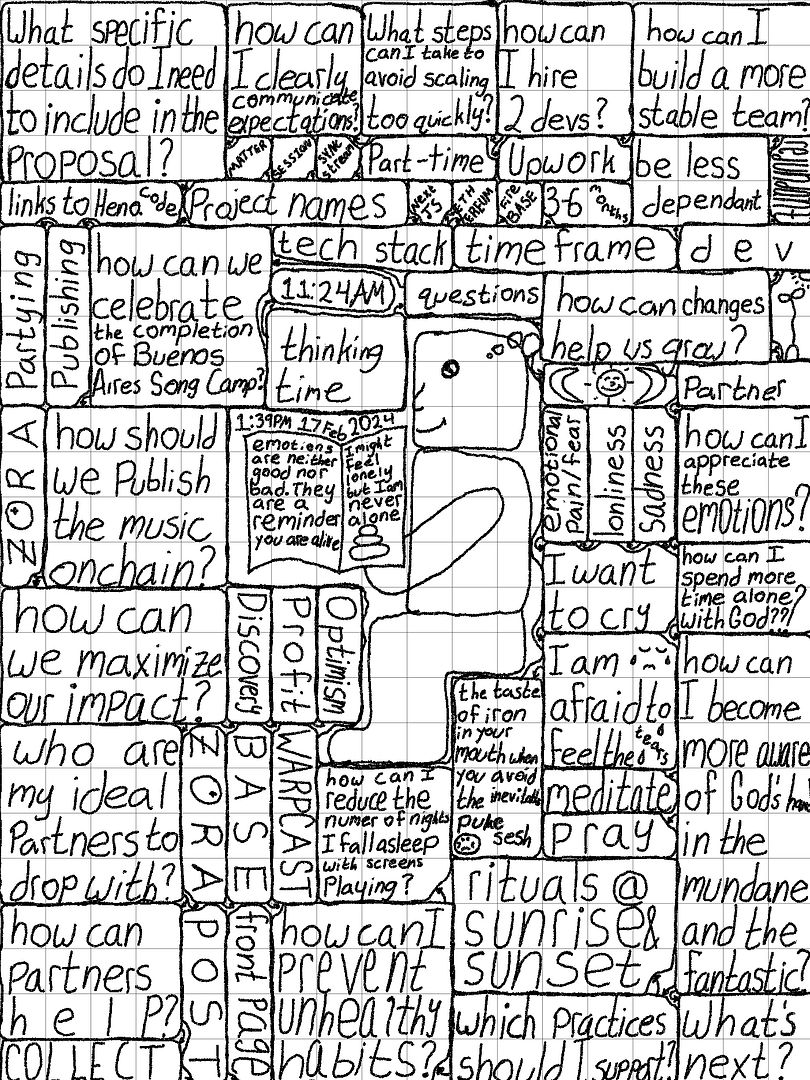 What specific
details do I need
to include in the
Proposal?
how can
I clearly
communicate
expectations?
What steps
can I take to
avoid scaling
too quickly?
how can
I hire
2 devs?
how can I
build a more
stable team?
MATTER
SESSION
SYNC
stream
Part-time
Upwork
be less
dependant
links to Heno
code
Project names
NEXT
JS
ETH
EREUM
FIRE
BASE
3-6
months
tech stack
time frame
dev
Partying
Publishing
how can we
celebrate
the completion
of Buenos
Aires Song Camp?
11:24AM
thinking
time
questions
how can changes
help us grow?
Partner
ZORA
how should
we Publish
the music
onchain?
1:39PM 17 Feb 2024
emotions
are neither
good nor
bad. They
are a
reminder
you are alive
I might
feel
lonely
but I am
never
alone
emotional
pain/fear
lonliness
Sadness
how can I
appreciate
these
emotions?
I want
to cry
how can I
spend more
time alone?
with God??/
how can
we maximize
our impact?
Discovery
Profit
Optimism
I am
afraid to
feel the
tears
how can
I become
more aware
of God's
in the
mundane
and the
fantastic?
the taste
of iron
in your
mouth when
you avoid
the inevitable
puke
sesh
meditate
pray
who are
my ideal
Partners to
drop with?
ZORA
BASE
WARPCAST
how can I
reduce the
numer of nights
I fall asleep
with screens
Playing?
rituals @
sunrise &
sunset
how can
Partners
help?
POST
front Page
how can I
prevent
unhealthy
habits?
which Practices
should I support?
What's
next?
COLLECT